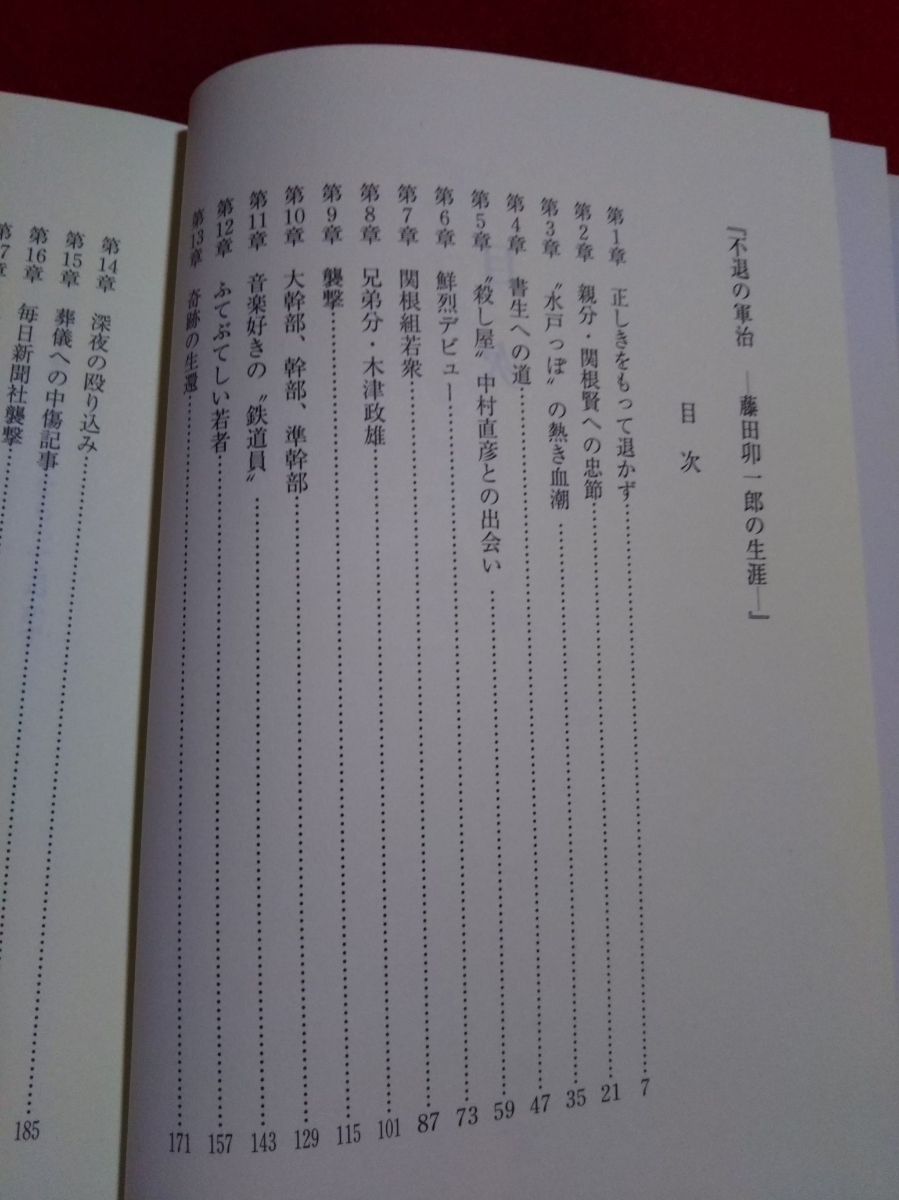 『不退の軍治 ―藤田卯一郎の生涯―』
目次
第1章 正しきをもって退かず……………………7
第2章 親分・関根賢への忠節……………………21
第3章 〝水戸っぽ〟の熱き血潮……………………35
第4章 書生への道……………………47
第5章 〝殺し屋〟中村直彦との出会い……………………59
第6章 鮮烈デビュー……………………73
第7章 関根組若衆……………………87
第8章 兄弟分・木津政雄……………………101
第9章 襲撃……………………115
第10章 大幹部、幹部、準幹部……………………129
第11章 音楽好きの〝鉄道員〟……………………143
第12章 ふてぶてしい若者……………………157
第13章 奇跡の生還……………………171
第14章 深夜の殴り込み……………………185
第15章 葬儀への中傷記事……………………
第16章 毎日新聞社襲撃……………………